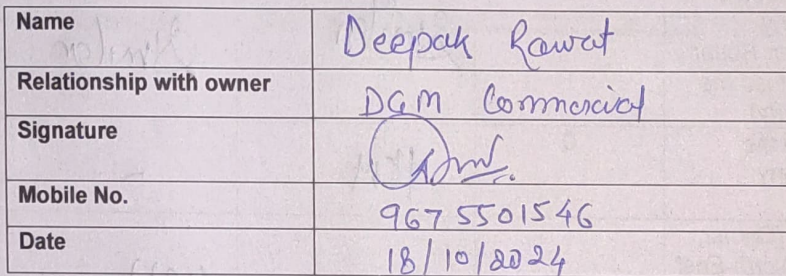 Name Deepak Rawat
Relationship with owner DGM Commercial
Signature
Mobile No. 9675501546
Date 18/10/2024